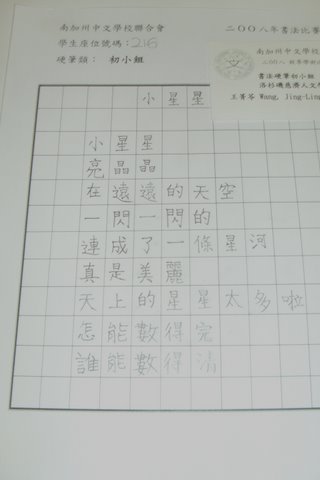 南加州中文學校聯合會
二〇〇八年書法比賽
學生座位號碼:216
硬筆類: 初小組
南加州中文學校
二〇〇八
書法硬筆初小組
洛杉磯慈濟人文學
王菁苓 Wang, Jing-Ling
小星星
小星星
亮晶晶
在遠遠的天空
一閃一閃的
連成了一條星河
真是美麗
天上的星星太多啦
怎能數得完
誰能數得清